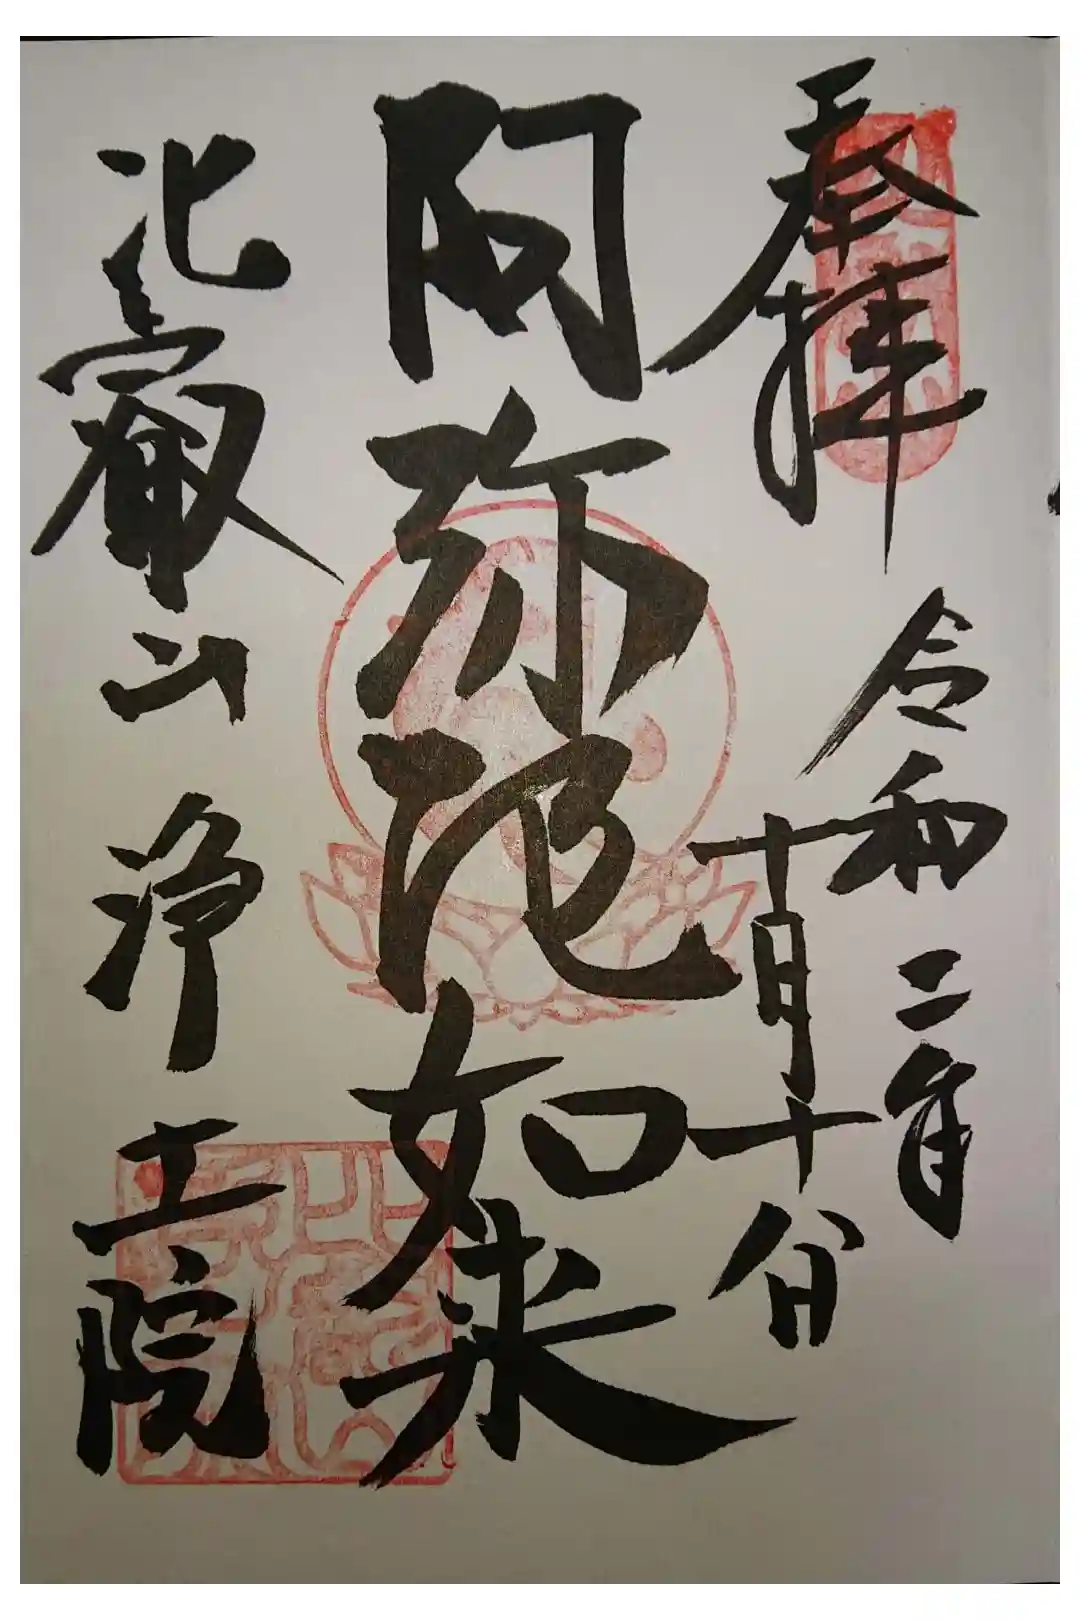 奉拝
令和二年
十月十八日
阿弥陀如来
比叡山 浄土院